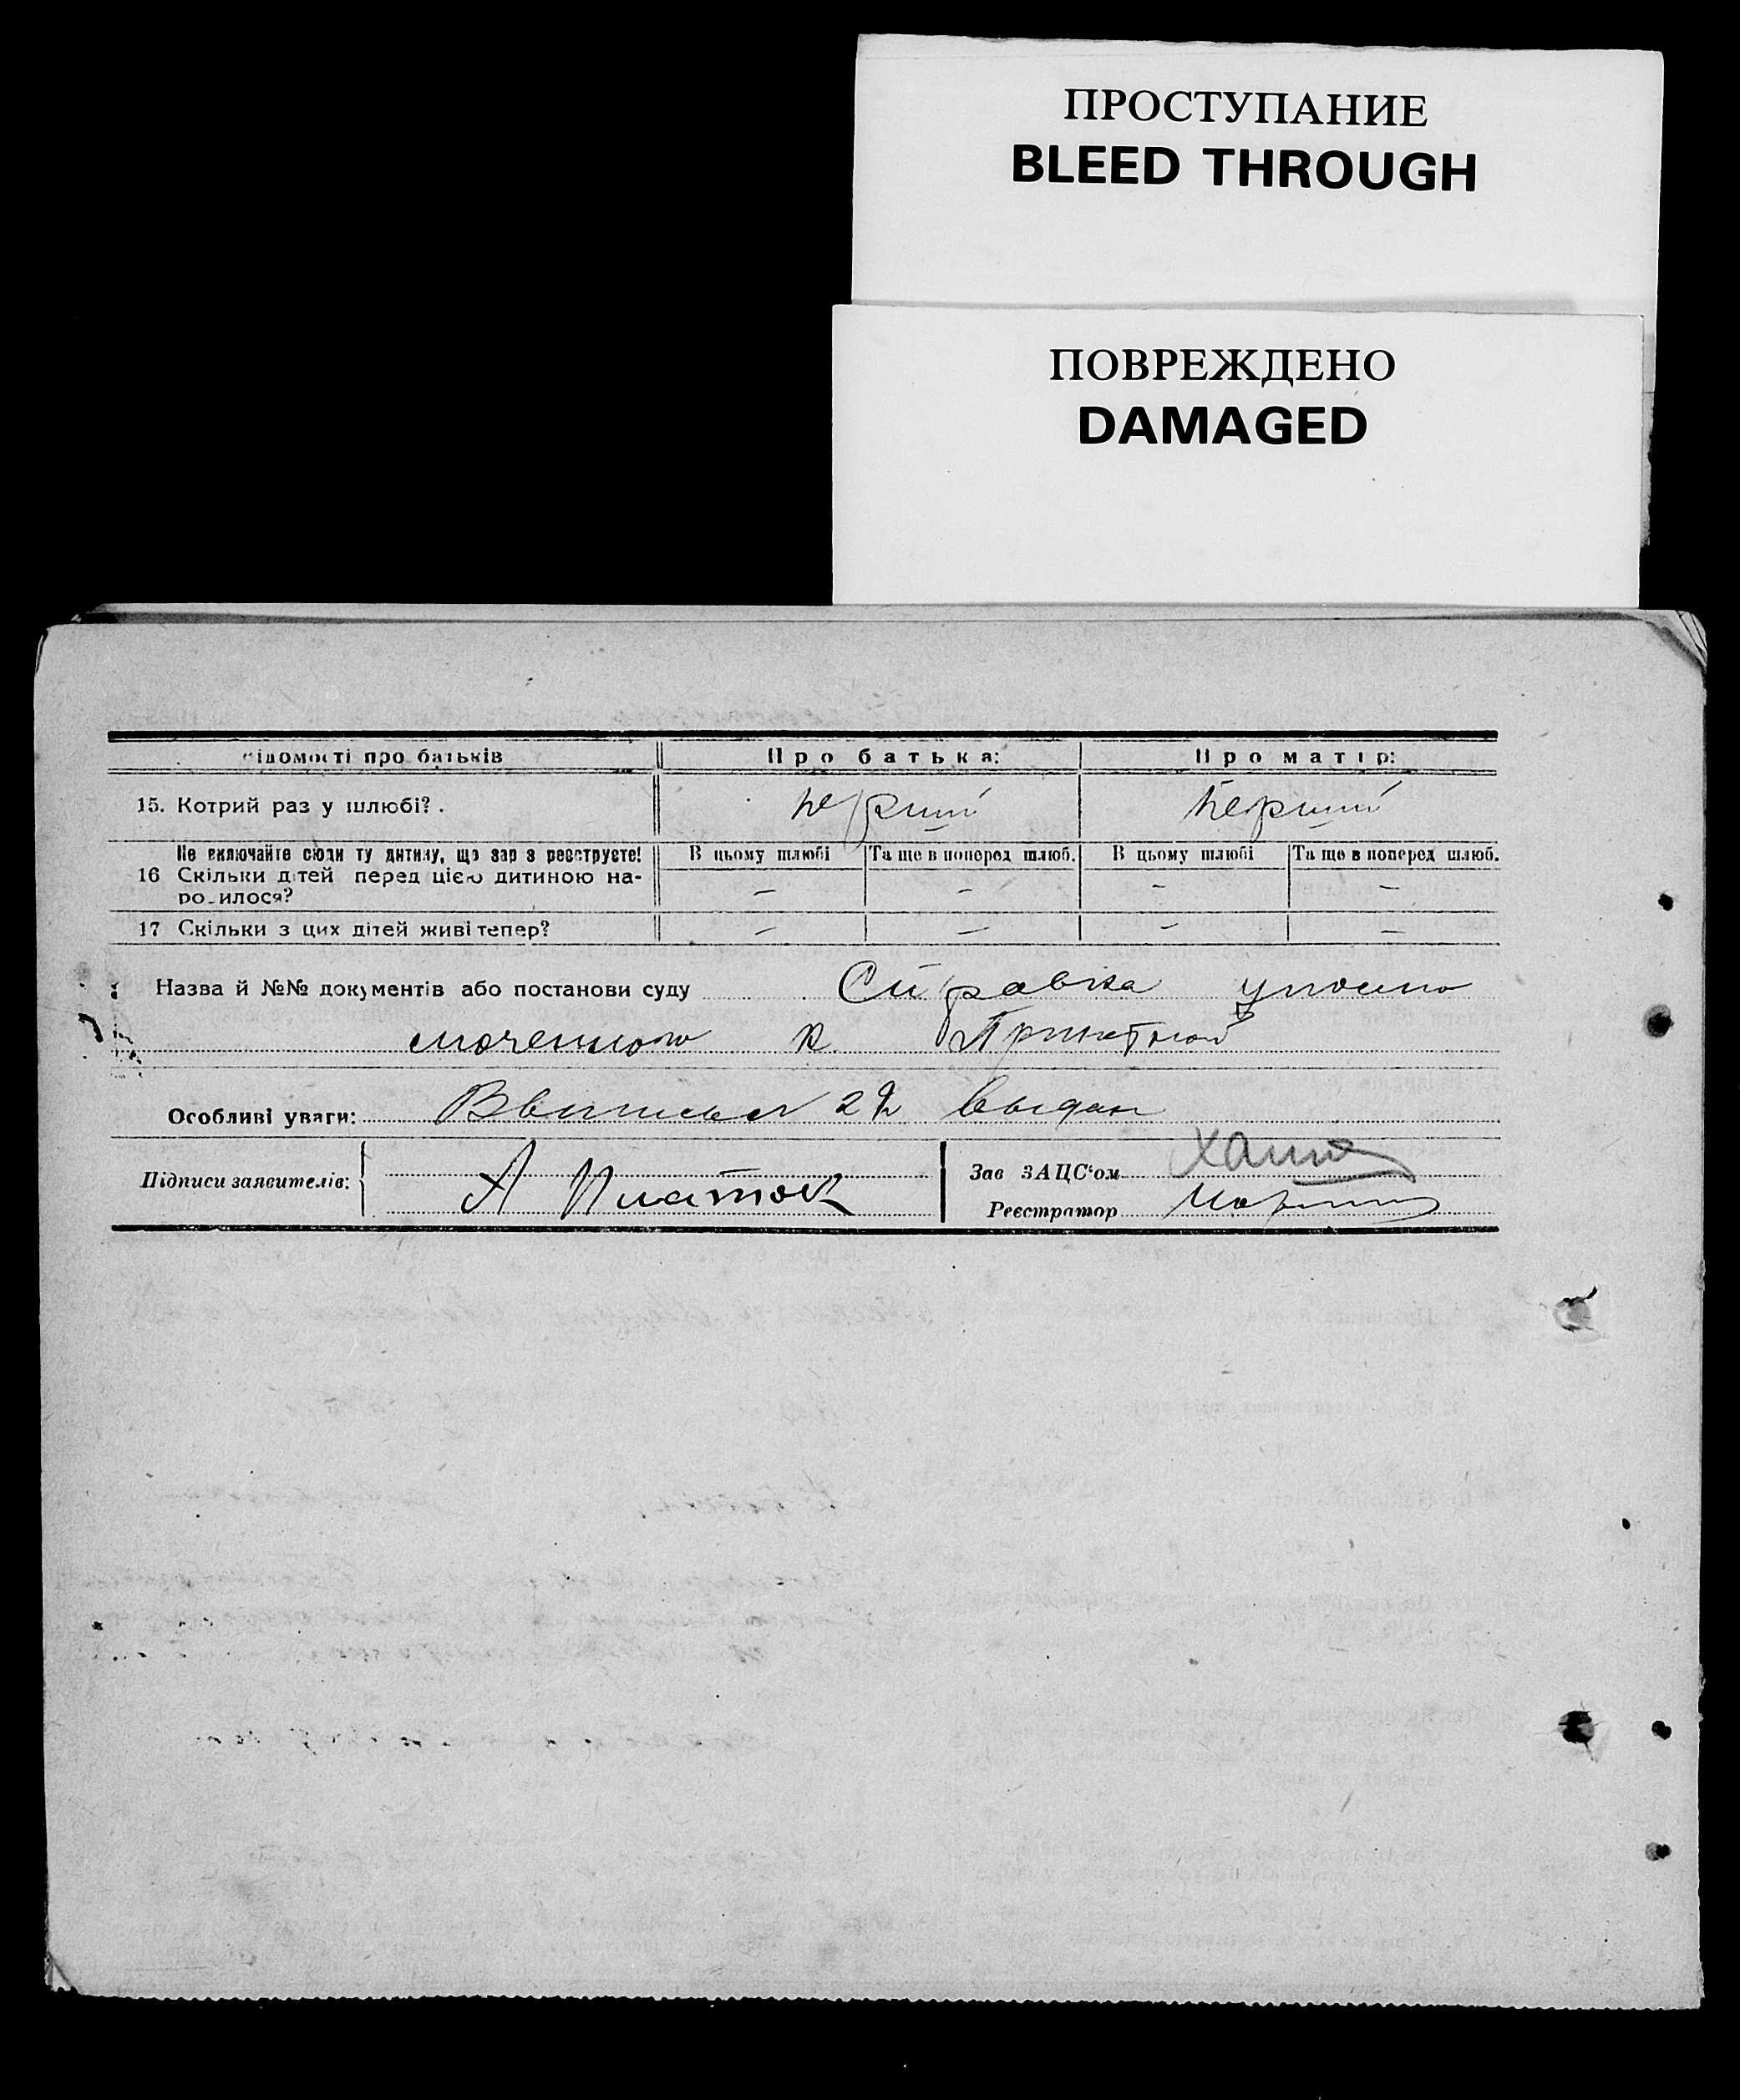 ПРОСТУПАНИЕ
BLEED THROUGH
ПОВРЕЖДЕНО
DAMAGED
ідомості про батьків Про батька: Про матір:
15. Котрий раз у шлюбі? . перший перший
Не включайте сюди ту дитину, що зар з реєструєте! В цьому шлюбі Та ще в поперед шлюб. В цьому шлюбі Та ще в поперед шлюб.
16 Скільки дітей перед цією дитиною на- — — — —
ро илося?
17 Скільки з цих дітей живі тепер? — — — —
Назва й №№ документів або постанови суду Справка уполно
моченного к
Особливі уваги: 2 выдан
Підписи заявителів: Зав ЗАЦС'ом
А Платок Реєстратор